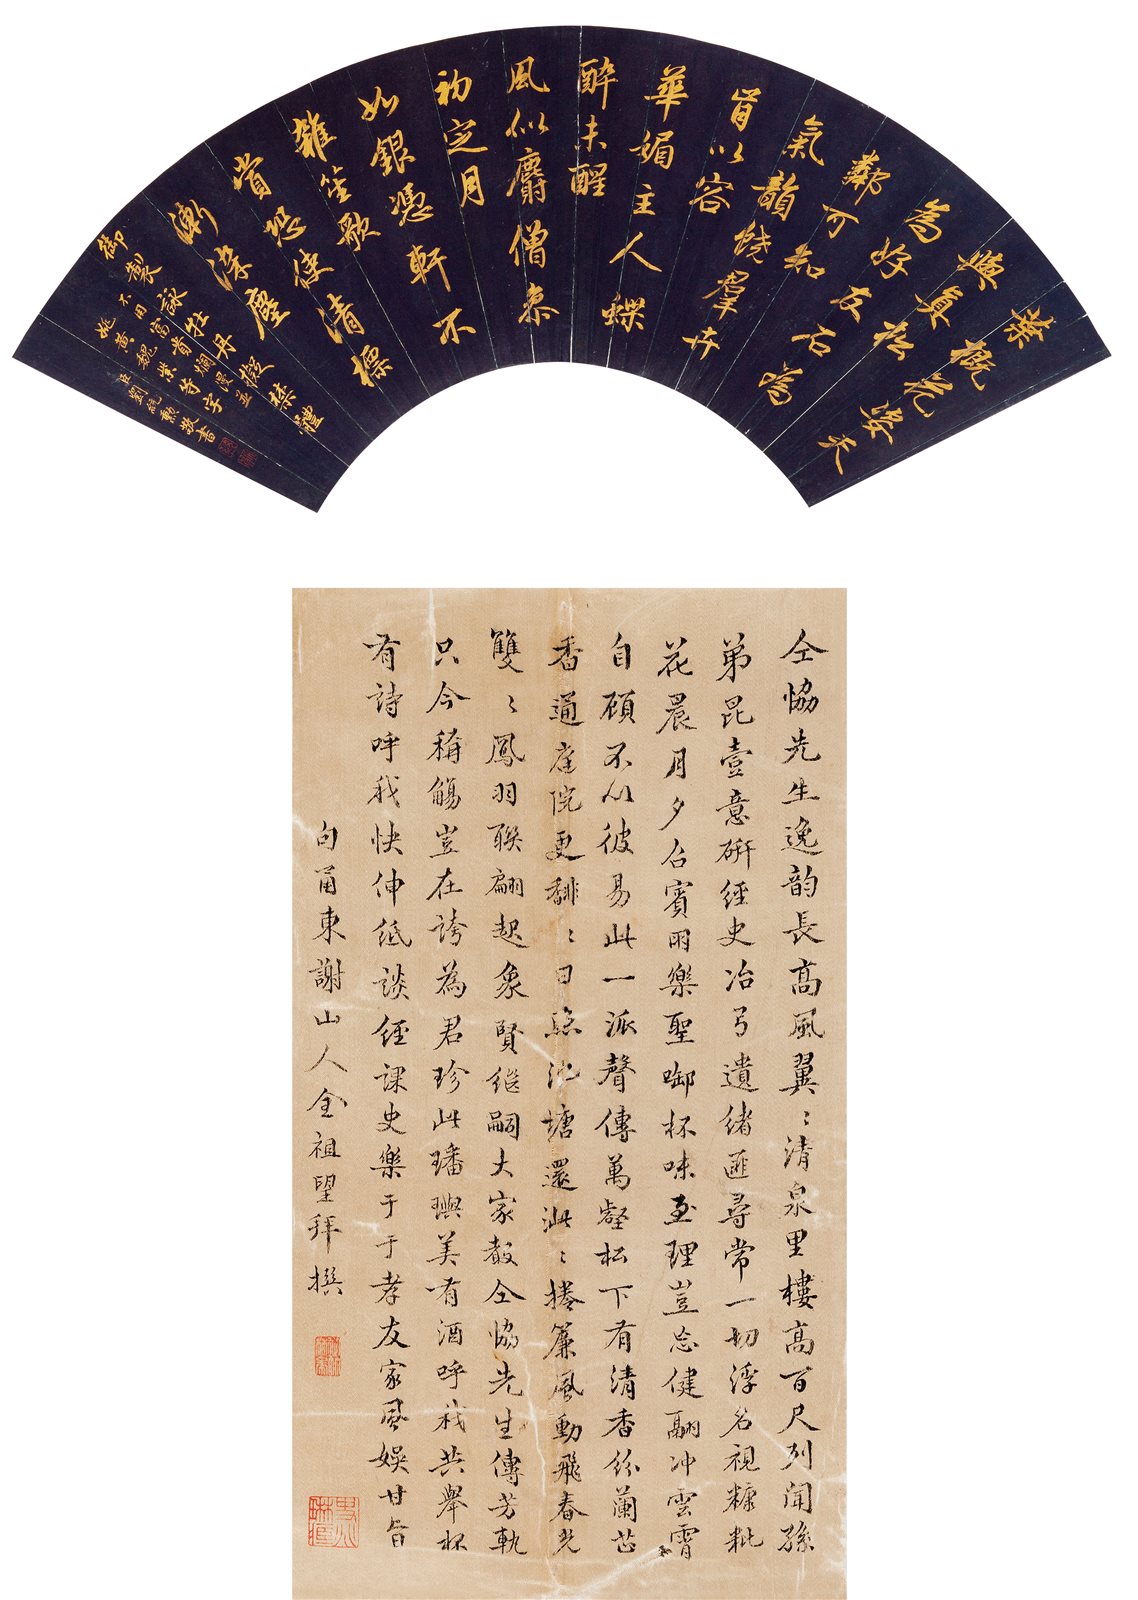 蔡
與槪花姿天
為負松
鄰好友石為
氣可知
韻饒羣卉
肯以容
華媚主人蝶
醉未醒
風似麝僧忝
初定月
如銀憑軒不
雜笙歌
賞恐使清標
漸深塵
御製詠牡丹擬禁體
不用富貴爛漫並
姚黃魏紫等字
臣劉統勳敬書
仝協先生逸韵長高風翼〻清泉里樓高百尺列聞孫
弟昆壹意硏經史冶弓遺緖匪尋常一切浮名視糠粃
花晨月夕召賓朋樂聖啣杯味至理豈忘健翮冲雲霄
自顧不以彼易此一派聲傳萬壑松下有清香紛蘭芷
香通庭院更馡〻日照池塘還泚〻捲簾風動飛春光
雙〻鳳羽聯翩起象賢繼嗣大家敎仝協先生傳芳軌
只今稱觴豈在誇為君珍此璠璵美有酒呼我共舉杯
有詩呼我快伸紙談經課史樂于于孝友家風娛甘旨
句甬東謝山人全祖望拜撰